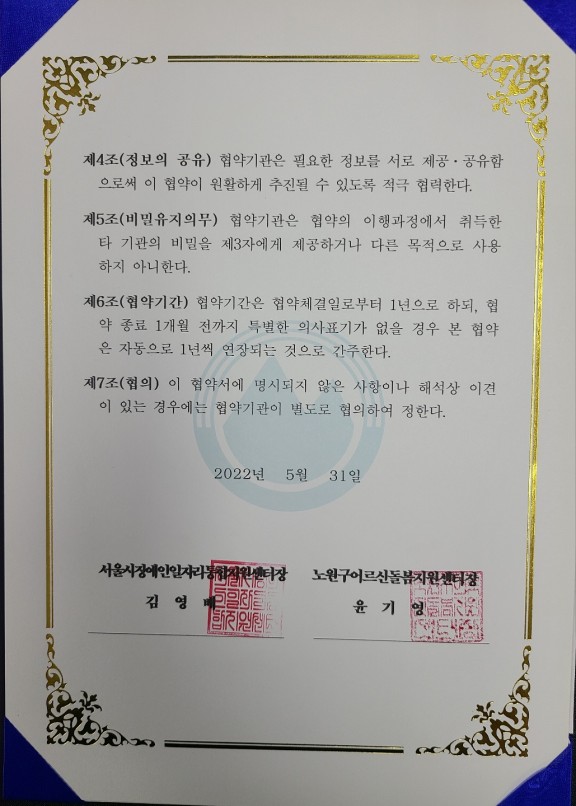 제4조(정보의 공유) 협약기관은 필요한 정보를 서로 제공·공유함
으로써 이 협약이 원활하게 추진될 수 있도록 적극 협력한다.
제5조(비밀유지의무) 협약기관은 협약의 이행과정에서 취득한
타 기관의 비밀을 제3자에게 제공하거나 다른 목적으로 사용
하지 아니한다.
제6조(협약기간) 협약기간은 협약체결일로부터 1년으로 하되, 협
약 종료 1개월 전까지 특별한 의사표기가 없을 경우 본 협약
은 자동으로 1년씩 연장되는 것으로 간주한다.
제7조(협의) 이 협약서에 명시되지 않은 사항이나 해석상 이견
이 있는 경우에는 협약기관이 별도로 협의하여 정한다.
2022년 5월 31일
서울시장애인일자리통합지원센터장
김 영 배
노원구어르신돌봄지원센터장
윤 기 영